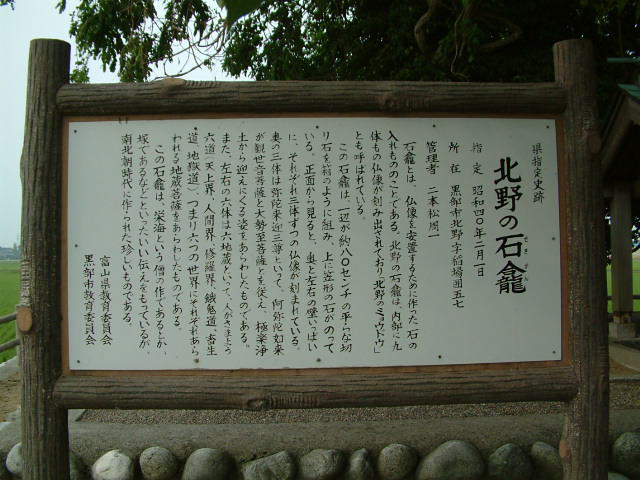 県指定史跡
北野の石龕
せきがん
指定 昭和四〇年二月一日
所在 黒部市北野字稲場圃五七
管理者 二本松周一
石龕とは、仏像を安置するために作った石の
入れもののことである。北野の石龕は、内部に九
体もの仏像が刻み出されており「北野のミョウドウ」
とも呼ばれている。
この石龕は、一辺が約八〇センチの平らな切
り石を箱のように組み、上に笠形の石がのって
いる。正面から見ると、奥と左右の壁いっぱい
に、それぞれ三体ずつの仏像が刻まれている。
奥の三体は弥陀来迎三尊といって、阿弥陀如来
が観世音菩薩と大勢至菩薩とを従え、極楽浄
土から迎えにくる姿をあらわしたものである。
また、左右の六体は六地蔵といって、人がさまよう
六道(天上界、人間界、修羅界、餓鬼道、畜生
道、地獄道)つまり六つの世界にそれぞれあら
われる地蔵菩薩をあらわしたものである。
この石龕は、栄海という僧の作であるとか、
塚であるなどといったいい伝えをもっているが、
南北朝時代に作られた珍しいものである。
富山県教育委員会
黒部市教育委員会